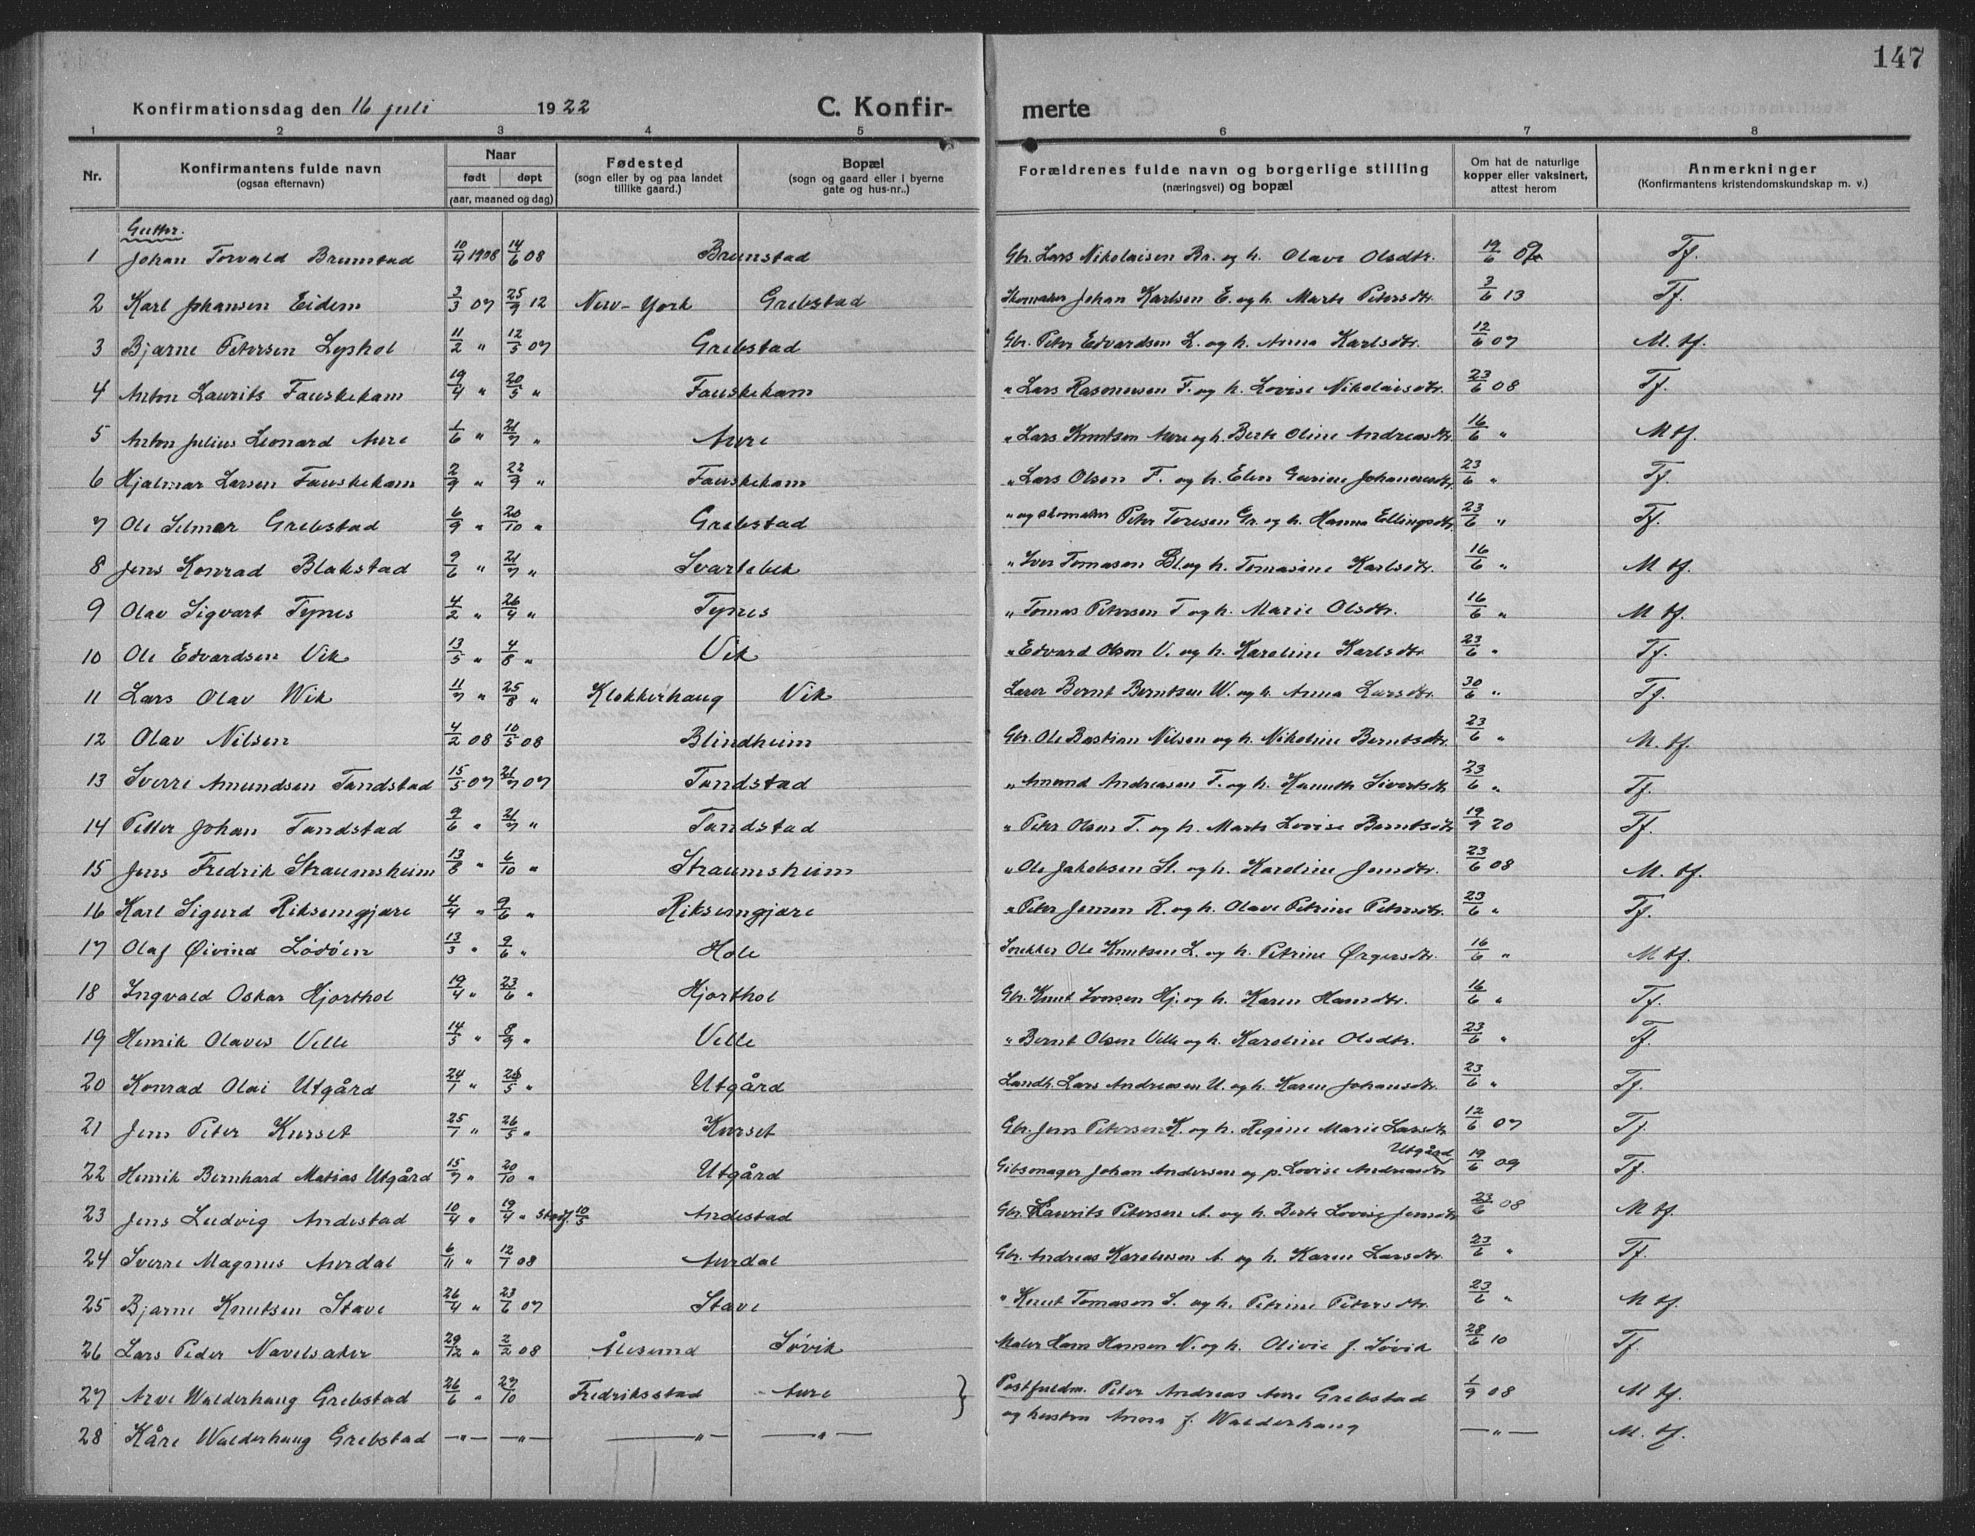 147
Konfirmationsdag den 16 juli 1922 C. Konfir- merte
1 2 3 4 5 6 7 8
Nr. Konfirmantens fulde navn (ogsaa efternavn) Naar født døpt (aar, maaned og dag) Fødested (sogn eller by og paa landet tillike gaard.) Bopæl (sogn og gaard eller i byerne gate og hus-nr.,) Forældrenes fulde navn og borgerlige stilling (næringsvei) og bopæl Om hat de naturlige kopper eller vaksinert, attest herom Anmerkninger (Konfirmantens kristendomskundskap m. v.)
Gutter.
1 Johan Torvald Brunstad 10/4 1908 14/6 08 Brunstad Gbr. Lars Nikolaisen Br. og h. Olave Olsdtr. 19/6 Tf.
2 Karl Johansen Eidem 3/3 07 25/9 12 New-York Grebstad Skomaker Johan Karlsen E. og h. Marte Petersdtr. 3/6 13 Tf.
3 Bjarne Petersen Lyshol 11/2 " 12/5 07 Grebstad Gbr. Peter Edvardsen L. og h. Anna Karlsdtr. 12/6 07 M. tf.
4 Anton Laurits Fauskekam 19/4 " 20/5 " Fauskekam " Lars Rasmussen F. og h. Lovise Nikolaisdtr. 23/6 08 Tf.
5 Anton Julius Leonard Aure 1/6 " 21/7 " Aure " Lars Knutsen Aure og h. Berte Oline Andreasdtr. 16/6 " M tf.
6 Hjalmar Larsen Fauskekam 2/9 " 22/9 " Fauskekam " Lars Olsen F. og h. Elen Gurine Johannesdtr. 23/6 " Tf.
7 Ole Selmer Grebstad 6/9 " 20/10 " Grebstad " og skomaker Peter Toresen Gr. og h. Hanna Ellingsdtr. 23/6 " Tf.
8 Jens Konrad Blakstad 9/6 " 21/7 " Svartebek " Iver Tomasen Bl. og h. Tomasine Karlsdtr. 16/6 " M tf.
9 Olav Sigvart Tynes 4/2 " 26/4 " Tynes " Tomas Petersen T og h. Marie Olsdtr. 16/6 " M tf.
10 Ole Edvardsen Vik 13/5 " 4/8 " Vik " Edvard Olsen V. og h. Karoline Karlsdtr 23/6 " Tf.
11 Lars Olav Wik 11/7 " 25/8 " Klokkerhaug Vik Lærer Bernt Berntsen W. og h. Anna Larsdtr. 30/6 " Tf.
12 Olav Nilsen 4/2 08 10/5 08 Blindheim Gbr. Ole Bastian Nilsen og h. Nikoline Berntsdtr. 23/6 " M. tf.
13 Sverre Amundsen Tandstad 15/5 07 21/7 07 Tandstad " Amund Andreasen T. og h. Sivertsdtr 23/6 " Tf.
14 Petter Johan Tandstad 9/6 " 21/7 " Tandstad " Peter Olsen T. og h. Marte Lovise Berntsdtr 19/9 20 Tf.
15 Jens Fredrik Straumsheim 13/8 " 6/10 " Straumsheim " Ole Jakobsen St. og h. Karoline Jensdtr. 23/6 08 M. tf.
16 Karl Sigurd Riksemgjære 4/4 " 9/6 " Riksemgjære " Peter Jensen R. og h. Olave Petrine Petersdtr. 23/6 " Tf.
17 Olaf Øivind Lødøen 13/3 " 9/6 " Hole Snekker Ole Knutsen L. og h. Petrine Ørgersdtr. 16/6 " M tf.
18 Ingvald Oskar Hjorthol 19/4 " 23/6 " Hjorthol Gbr. Knut Iversen Hj. og h. Karen Hansdtr. 16/6 " Tf.
19 Henrik Olaves Velle 14/5 " 8/9 " Velle " Bernt Olsen Velle og h. Karoline Olsdtr. 23/6 " Tf.
20 Konrad Olai Utgård 24/7 " 26/5 " Utgård Landh. Lars Andreasen U. og h. Karen Johansdtr. 23/6 " Tf.
21 Jens Peter Kurset 25/7 " 26/5 " Kurset Gbr. Jens Petersen K. og h. Regine Marie Larsdtr 12/6 07 Tf.
22 Henrik Bernhard Matias Utgård 15/7 " 20/10 " Utgård Gibsmager Johan Andersen og p. Lovise Andreasdtr Utgård 19/6 09 Tf.
23 Jens Ludvig Andestad 10/4 " 19/4 " stadf. 10/5 Andestad Gbr. Laurits Petersen A. og h. Berte Lovise Jensdtr 23/6 08 M tf.
24 Sverre Magnus Aurdal 6/11 " 12/7 08 Aurdal Gbr. Andreas Karolusen A. og h. Karen Larsdtr. 23/6 " Tf.
25 Bjarne Knutsen Stave 26/4 " 23/6 07 Stave " Knut Tomasen S. og h. Petrine Petersdtr. 23/6 " M tf.
26 Lars Peder Navelsaker 29/12 " 2/2 08 Ålesund Søvik Maler Hans Hansen N. og h. Olivie f. Søvik 28/6 10 Tf.
27 Arve Walderhaug Grebstad 26/6 " 27/10 Fredriksstad Aure } Postfuldm. Peter Andreas Aure Grebstad 1/9 08 M tf.
og hustru Anna f. Walderhaug
28 Kåre Walderhaug Grebstad —"— —"— —"— —"— —"— M. tf.